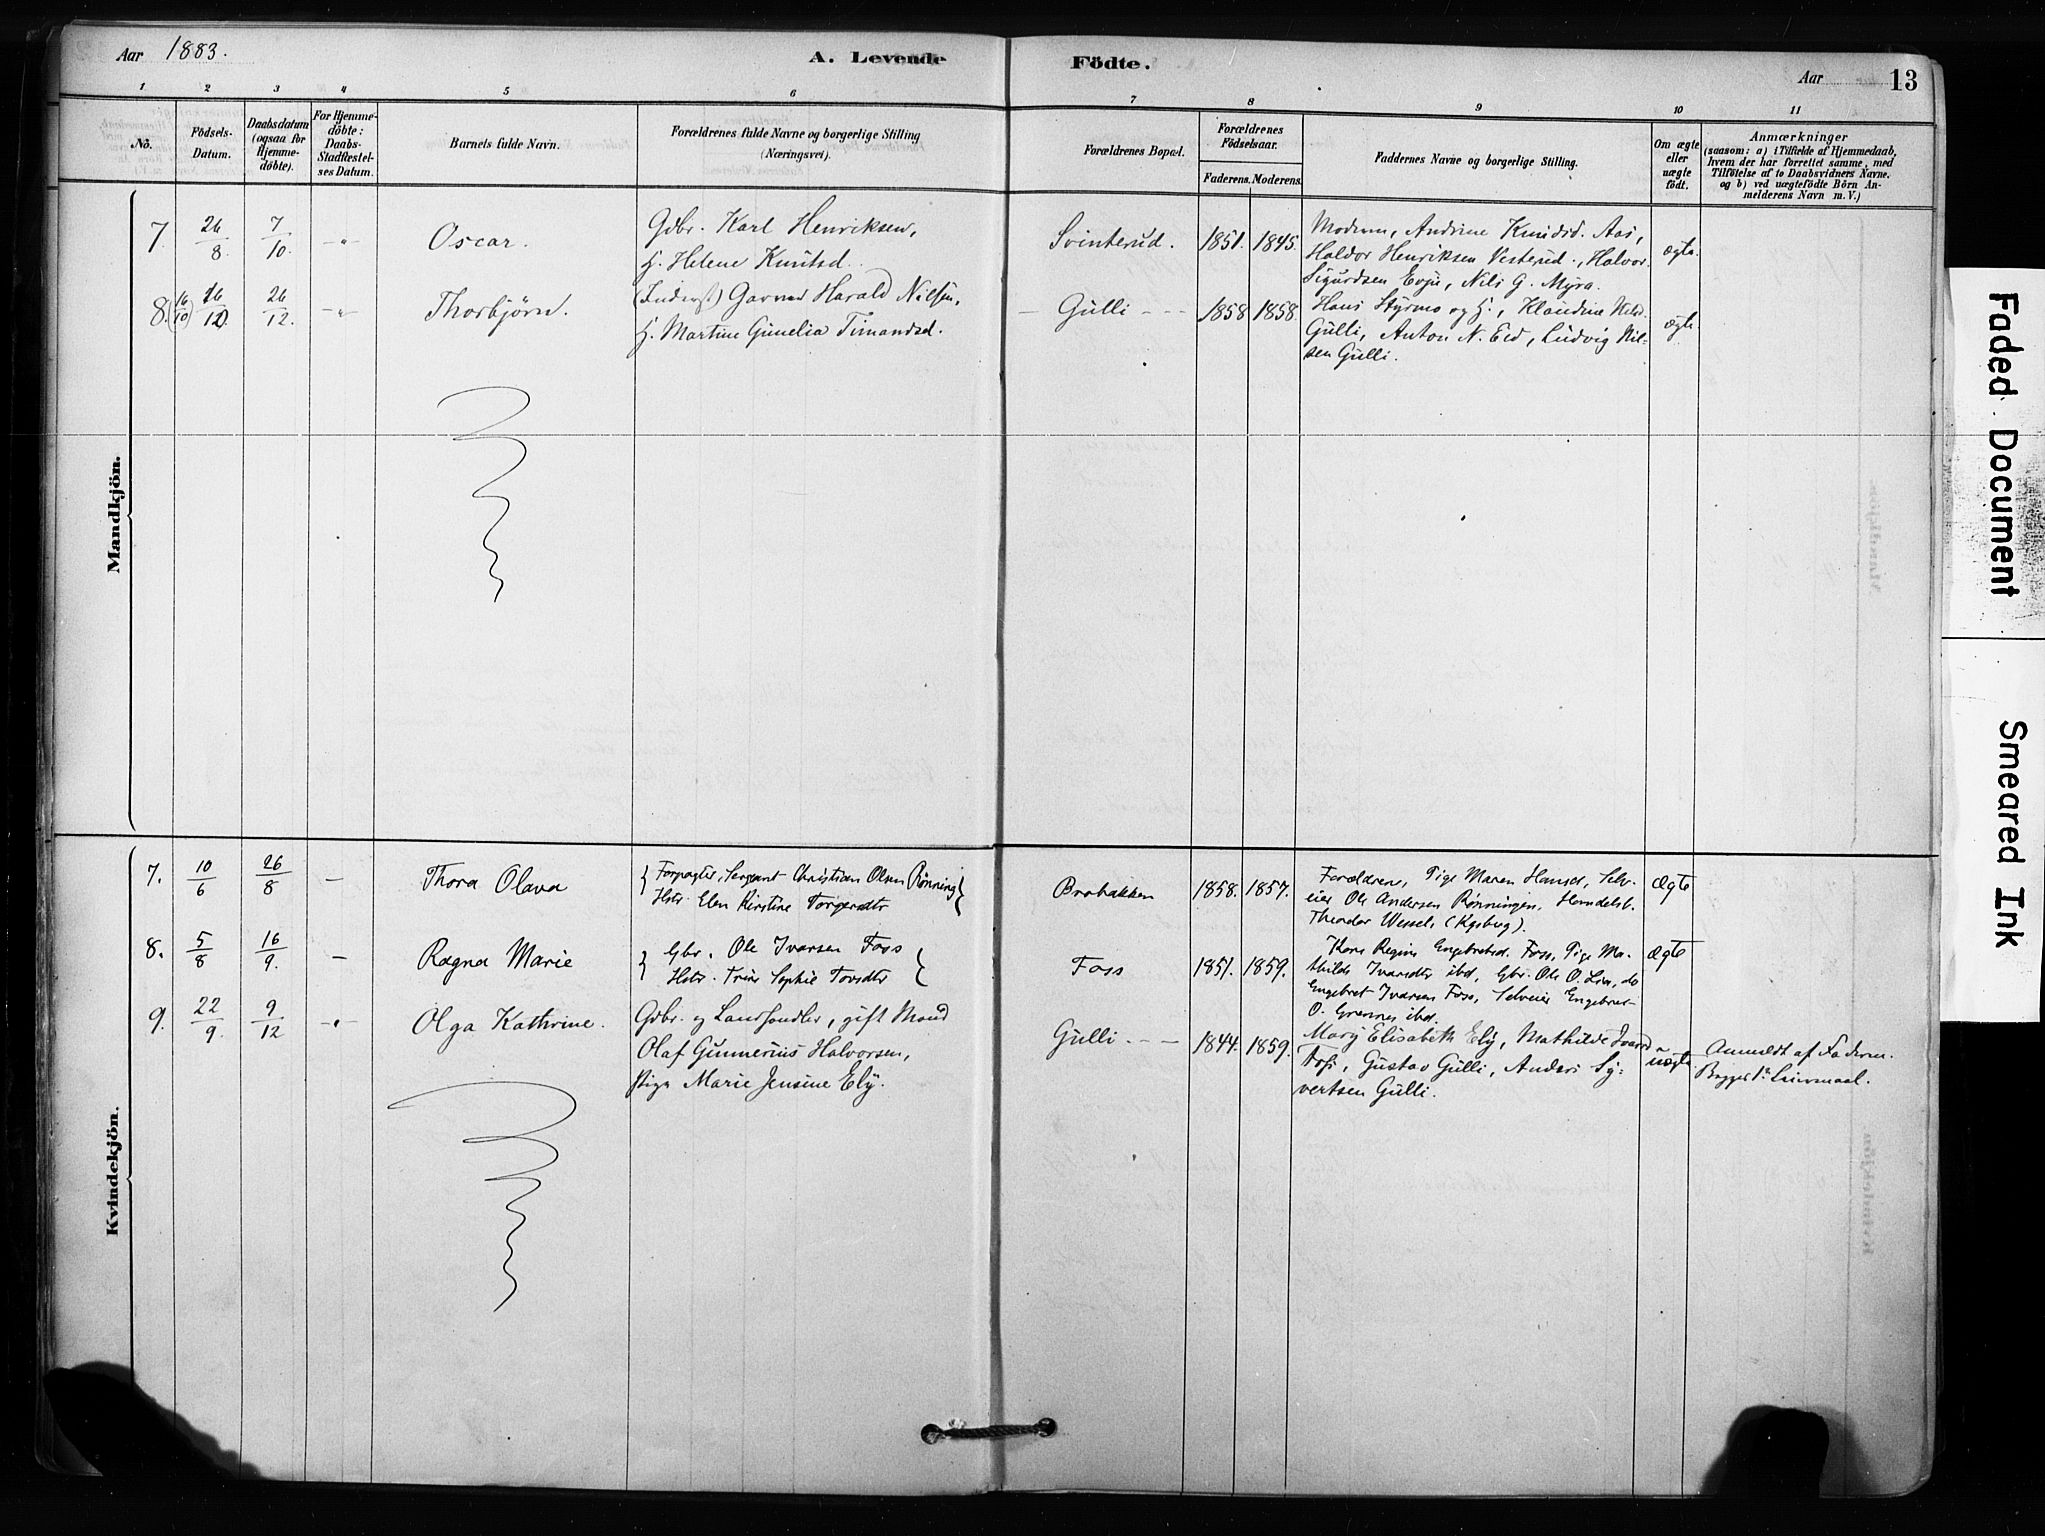 Aar 1883. A. Levende Födte. Aar 13
1 2 3 4 5 6 7 8 9 10 11
Nö.
Födsels-
Datum.
Daabsdatum
(ogsaa for
Hjemme-
döbte).
For Hjemme-
döbte:
Daabs-
Stadfæstel-
ses Datum.
Barnets fulde Navn.
Forældrenes fulde Navne og borgerlige Stilling
(Næringsvei).
Forældrenes Bopæl.
Forældrenes
Födselsaar.
Faderens. Moderens.
Faddernes Navne og borgerlige Stilling.
Om ægte
eller
uægte
födt.
Anmærkninger
(saasom: a) i Tilfælde af Hjemmedaab,
hvem der har forrettet samme, med
Tilföielse af to Daabsvidners Navne.
og b) ved uægtefödte Börn An-
melderens Navn m. V.)
Mandkjön.
7. 26/8 7/10. -"- Oscar.
Gdbr. Karl Henriksen,
H. Helene Knutsd.
Svinterud. 1851. 1845.
Modum, Andrine Knudsd. Aas,
Haldor Henriksen Vesterud., Halvor
Sigurdsen Evju, Nils G. Myra.
ægte.
8. (16/10) 26/12. -"- Thorbjørn.
(Inderst) Garver Harald Nilsen,
H. Martine Gunelia Timandsd.
— Gulli - - - 1858 1858
Hans Styrmo og H., Klaudine Nilsd.
Gulli, Anton N. Eid, Ludvig Nil-
sen Gulli.
ægte.
Kvindekjön.
7. 10/6 26/8 — Thora Olava
Forpagter, Sergeant Christian Olsen Rönning
Hstr. Elen Kirstine Torgersdtr
Brobakken 1858. 1857.
Forældrene, Pige Maren Hansd, Selv-
eier Ole Andersen Rønningen, Handelsb.
Theodor Wessel, (Kgsberg).
Ægte
8. 5/8 16/9. — Ragna Marie
Gbr. Ole Ivarsen Foss
Hstr. Trine Sophie Tovsdtr
Foss 1851. 1859.
Kone Regine Engebretsd. Foss, Pige Ma-
thilde Ivarsdtr ibd, Gbr. Ole O. Lien, do
Engebret Ivarsen Foss, Selveier Engebret
O. Grønnes ibd.
Ægte
9. 22/9. 9/12 -"- Olga Kathrine.
Gdbr. og Landhandler, gift Mand
Olaf Gunnerius Halvorsen,
Pige Marie Jensine Ely.
Gulli. - - 1844. 1859.
Mary Elisabeth Ely, Mathilde Ivarsd
Foss, Gustav Gulli, Anders Sy-
vertsen Gulli.
uægte.
Anmeldt af Faderen.
Begges 1ste Leiermaal.
Faded Document
Smeared Ink